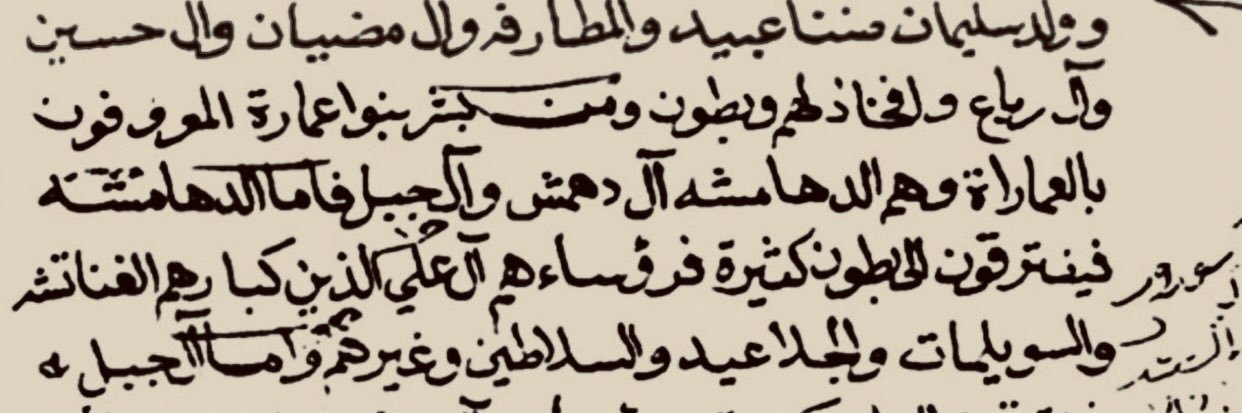 وولد سليمان مننا عبيد والمطارفه وال مضيان وال حسين
وآل رباع ولافخاذ لهم وبطون ومن بشر بنوا عمارة المعروفون
بالعماراة وهم الدهامشه آل دهمش وآل جبيل فاما الدهامشه
فيفترقون الى بطون كثيرة فرؤساءهم آل علي الذين كبارهم الفناتشه
والسويلمات والجلاعيد والسلاطين وغيرهم واما آل جبيل